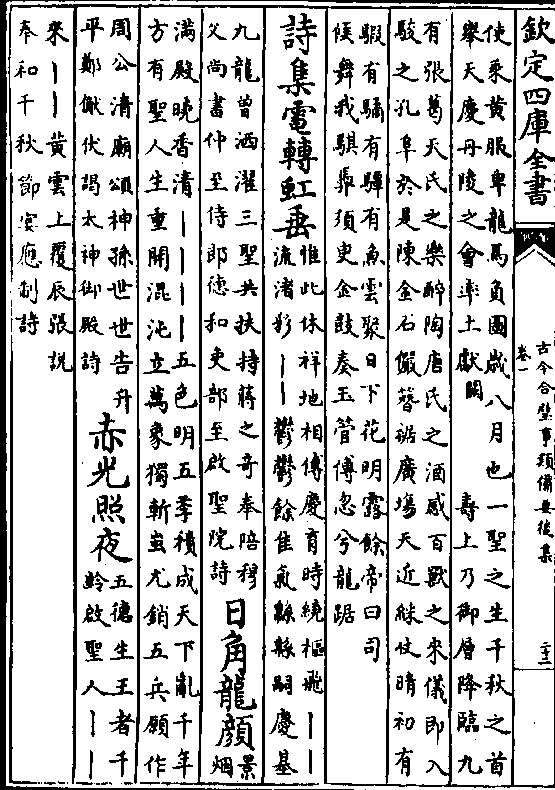 欽定四庫全書
古今合璧事類備要後集
卷一
使乘黄服卑龍馬負圖歳八月也一聖之生千秋之首
舉天慶丹陵之會率土獻闕 壽上乃御層降臨九
有張葛天氏之樂醉陶唐氏之酒感百獸之來儀即入
駿之孔阜於是陳金石儼簪裾廣塲天近綵仗晴初有
騢有驈有驒有魚雲聚日下花明露餘帝曰司
候舞我騏驥須臾金鼓奏玉管傳忽兮龍踞
詩集電轉虹垂
惟此休祥地相傳慶育時繞樞飛丨丨
流渚彩丨丨鬱鬱餘佳氣緜緜嗣慶基
九龍曾洒濯三聖共扶持蔣之奇奉陪穆
父尚書仲至侍郎徳和吏部至啟聖院詩
日角龍顔
景
烟
滿殿曉香清丨丨丨丨五色明五季積成天下亂千年
方有聖人生重開混沌立萬象獨斬蚩尤銷五兵願作
周公清廟頌神孫世世告升
平鄭俶伏謁太神御殿詩
赤光照夜
五徳生王者千
齡啟聖人丨丨
來丨丨黄雲上覆辰張説
奉和千秋節宴應制詩